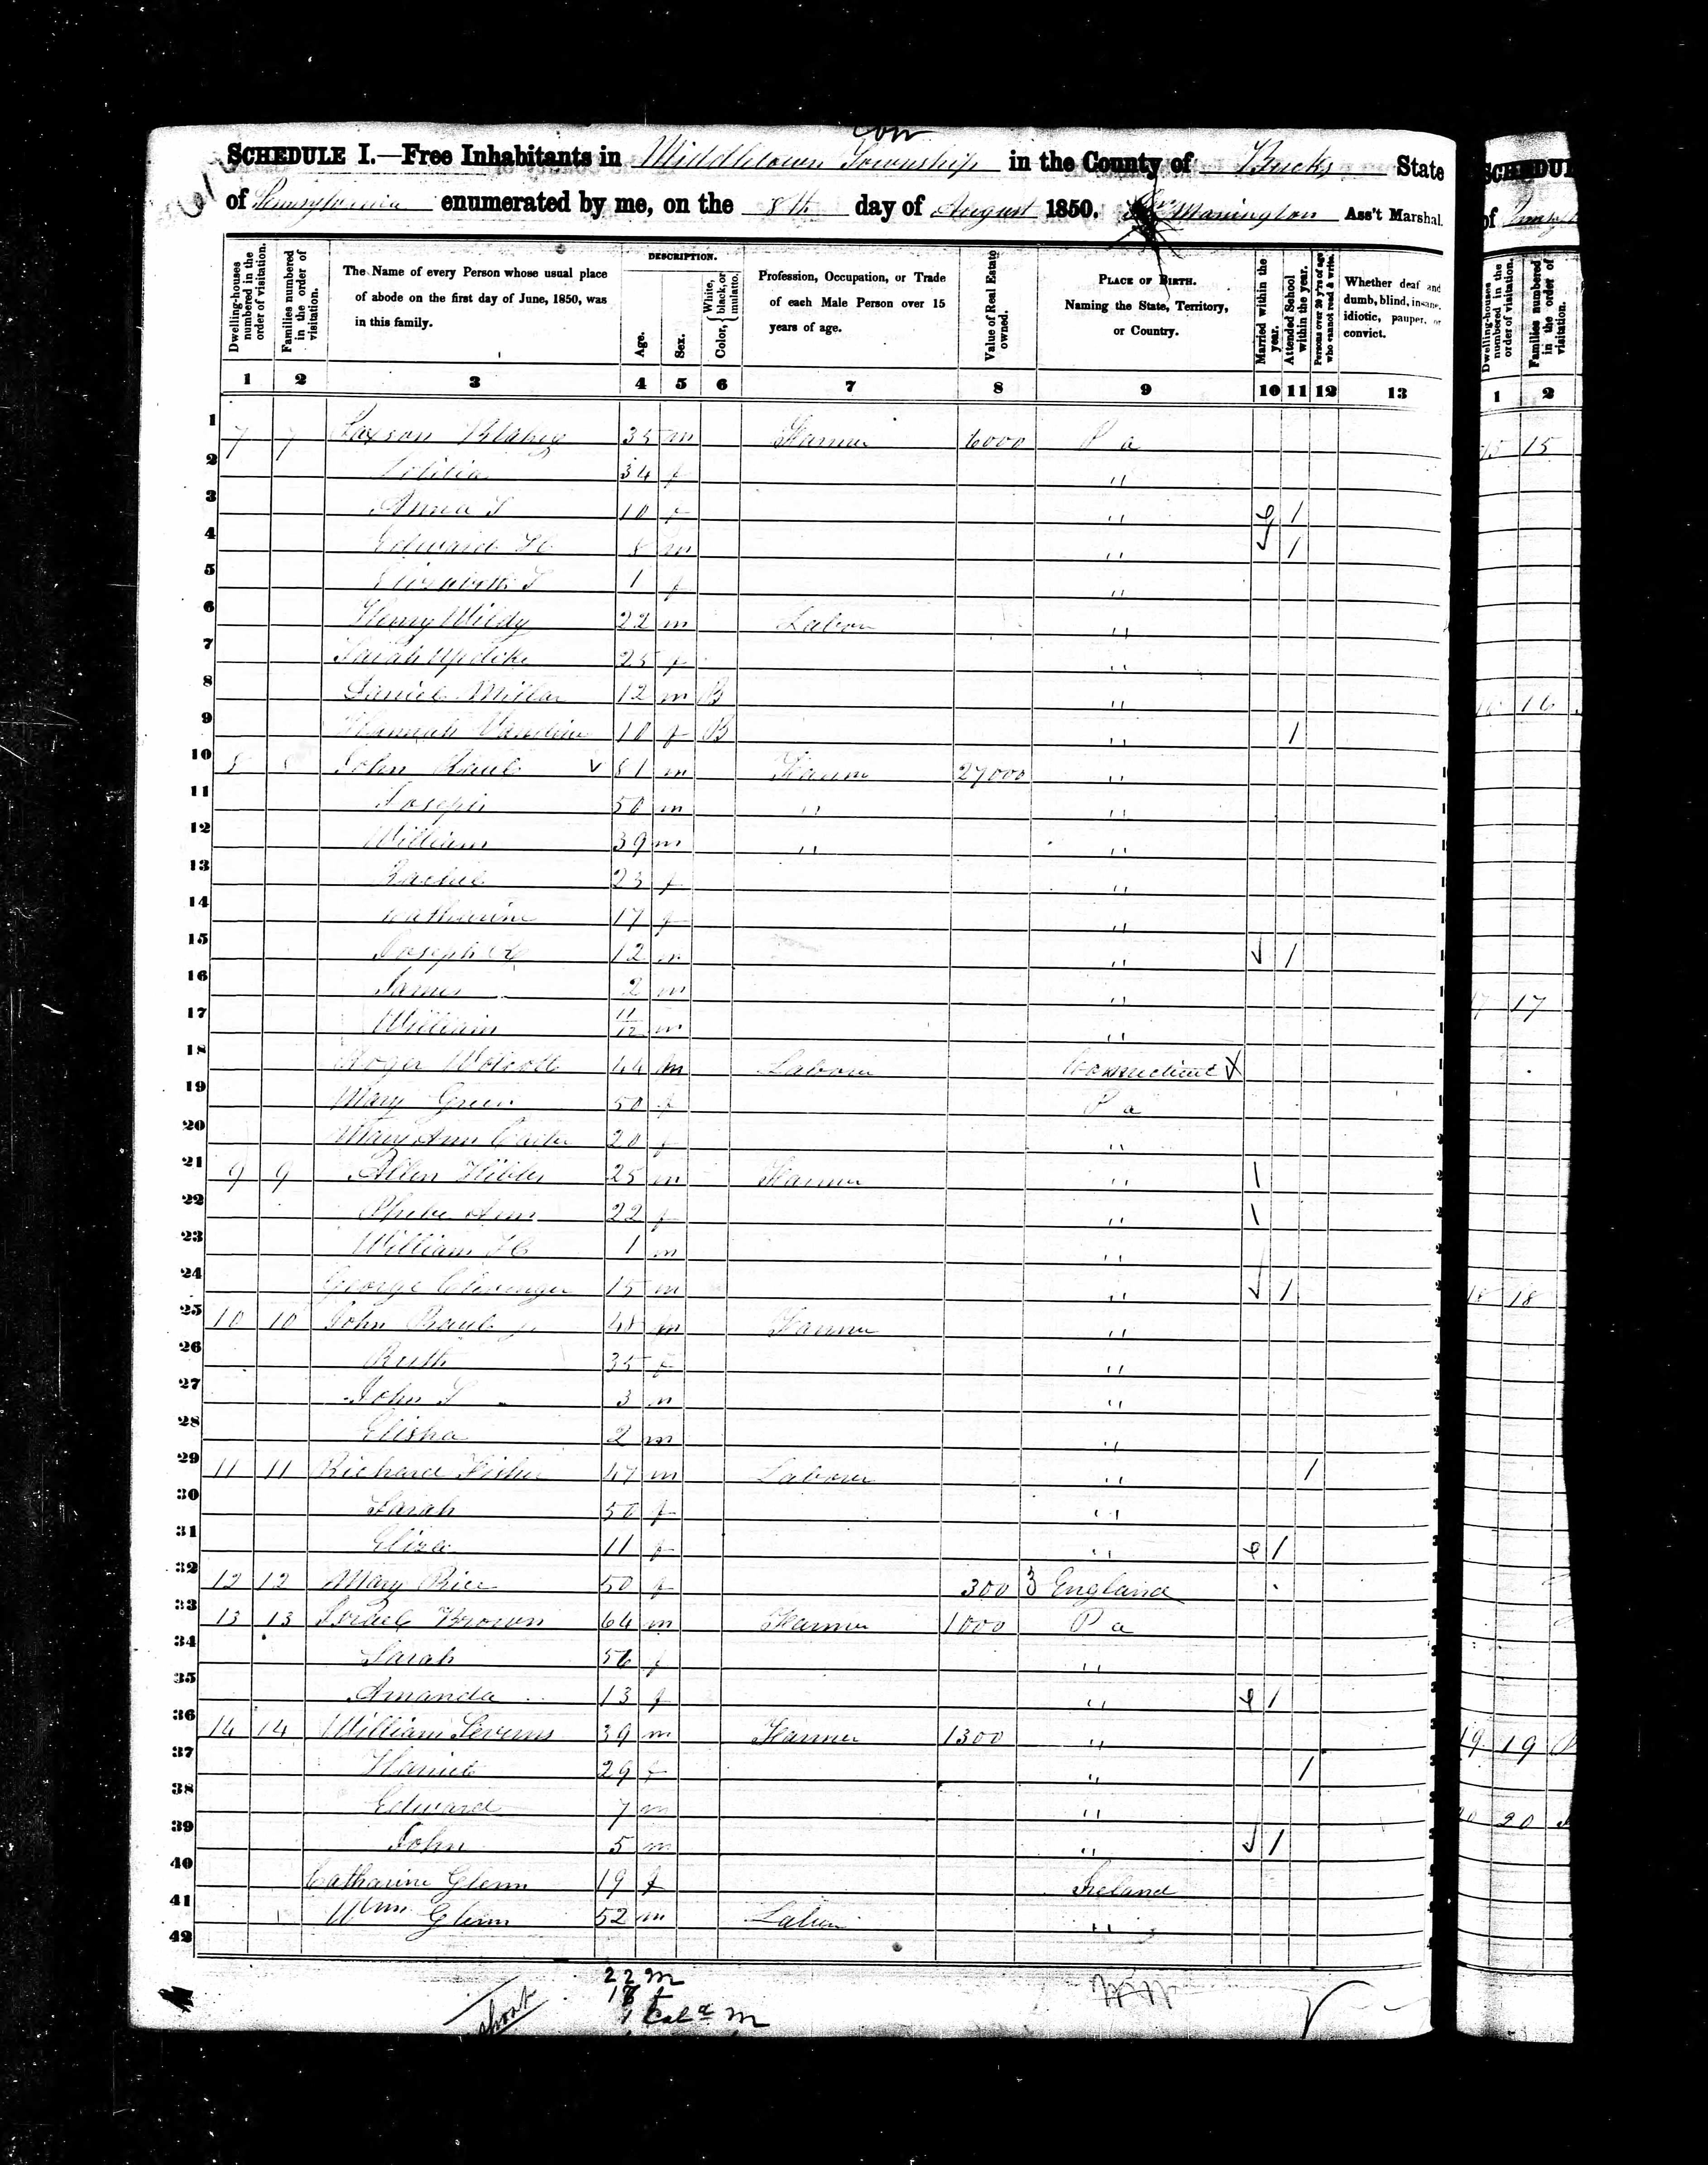 SCHEDULE I.—Free Inhabitants in Middletown Township in the County of Bucks State
of Pennsylvania enumerated by me, on the 8th day of August 1850. Manington Ass't Marshal.
Dwelling-houses numbered in the order of visitation.
Families numbered in the order of visitation.
The Name of every Person whose usual place of abode on the first day of June, 1850, was in this family.
DESCRIPTION.
Age.
Sex.
Color, { White, black, or mulatto.
Profession, Occupation, or Trade of each Male Person over 15 years of age.
Value of Real Estate owned.
PLACE OF BIRTH. Naming the State, Territory, or Country.
Married within the year.
Attended School within the year.
Persons over 20 y'rs of age who cannot read & write.
Whether deaf and dumb, blind, insane, idiotic, pauper, or convict.
1 2 3 4 5 6 7 8 9 10 11 12 13
1 7 7 35 m Farmer 6000 Pa
2 Letitia 34 f "
3 Anna S 10 f " 1
4 Edward H 8 m " 1
5 Elizabeth S 1 f "
6 Henry Wildy 22 m Labor "
7 Sarah Updike 25 f "
8 Daniel Millar 12 m B "
9 Hannah 10 f B " 1
10 8 8 John Paul 81 m Farm 27000 "
11 Joseph 50 m " "
12 William 39 m " "
13 Rachel 23 f "
14 Catharine 17 f "
15 Joseph 12 m " 1
16 James 2 m "
17 William 11/12 m "
18 Roger Wolcott 44 m Laborer Connecticut
19 Mary Green 50 f Pa
20 Mary Ann Carter 20 f "
21 9 9 Allen 25 m Farmer " 1
22 Phebe Ann 22 f " 1
23 William H 1 m "
24 George Clevenger 15 m " 1
25 10 10 John Paul Jr 48 m Farmer "
26 Ruth 35 f "
27 John S 3 m "
28 Elisha 2 m "
29 11 11 Richard Fisher 47 m Laborer " 1
30 Sarah 50 f "
31 Eliza 11 f " 1
32 12 12 Mary Rice 50 f 300 England
33 13 13 Israel Brown 64 m Farmer 1000 Pa
34 Sarah 56 f "
35 Amanda 13 f " 1
36 14 14 William Severns 39 m Farmer 1300 "
37 Harriet 29 f " 1
38 Edward 7 m "
39 John 5 m " 1
40 Catharine Glenn 19 f Ireland
41 Wm Glenn 52 m Labor "
42
22 m
1 Cold m
SCHEDUL
of
Dwelling-houses numbered in the order of visitation.
Families numbered in the order of visitation.
1 2
15 15
16 16
17 17
18 18
19 19
20 20